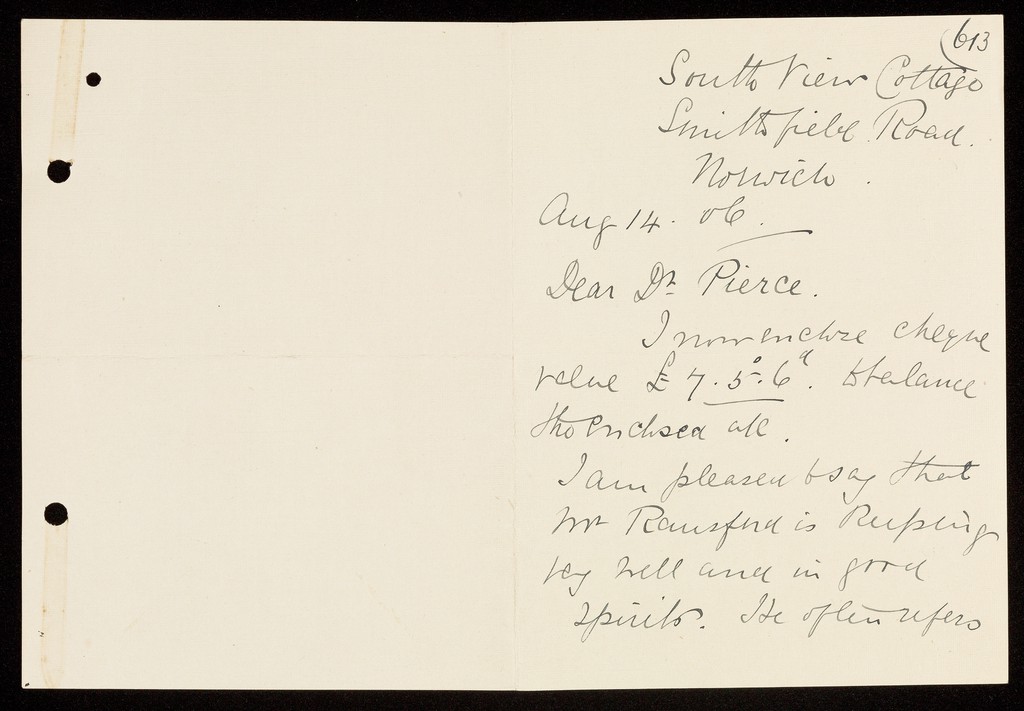 613
South View Cottage
Smithfield Road.
Norwich.
Aug 14. 06.
Dear Dr Pierce.
I now enclose cheque
value £7. 5s. 6d. to balance
the enclosed a/c.
I am pleased to say that
Mr Ransford is keeping
very well and in good
spirits. He often refers